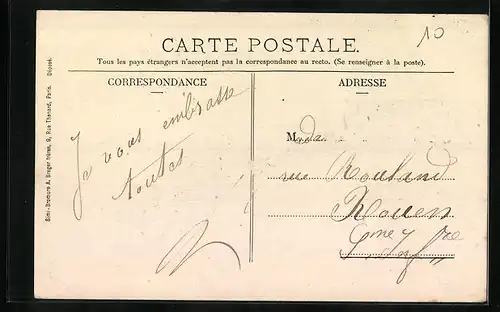 10
CARTE POSTALE.
Tous les pays étrangers n'acceptent pas la correspondance au recto. (Se renseigner à la poste).
CORRESPONDANCE
ADRESSE
Je vous embrasse
toutes
M
rue
Rouen
Simi-Bromure A. Breger frères, 9, Rue Thénard, Paris. Déposé.